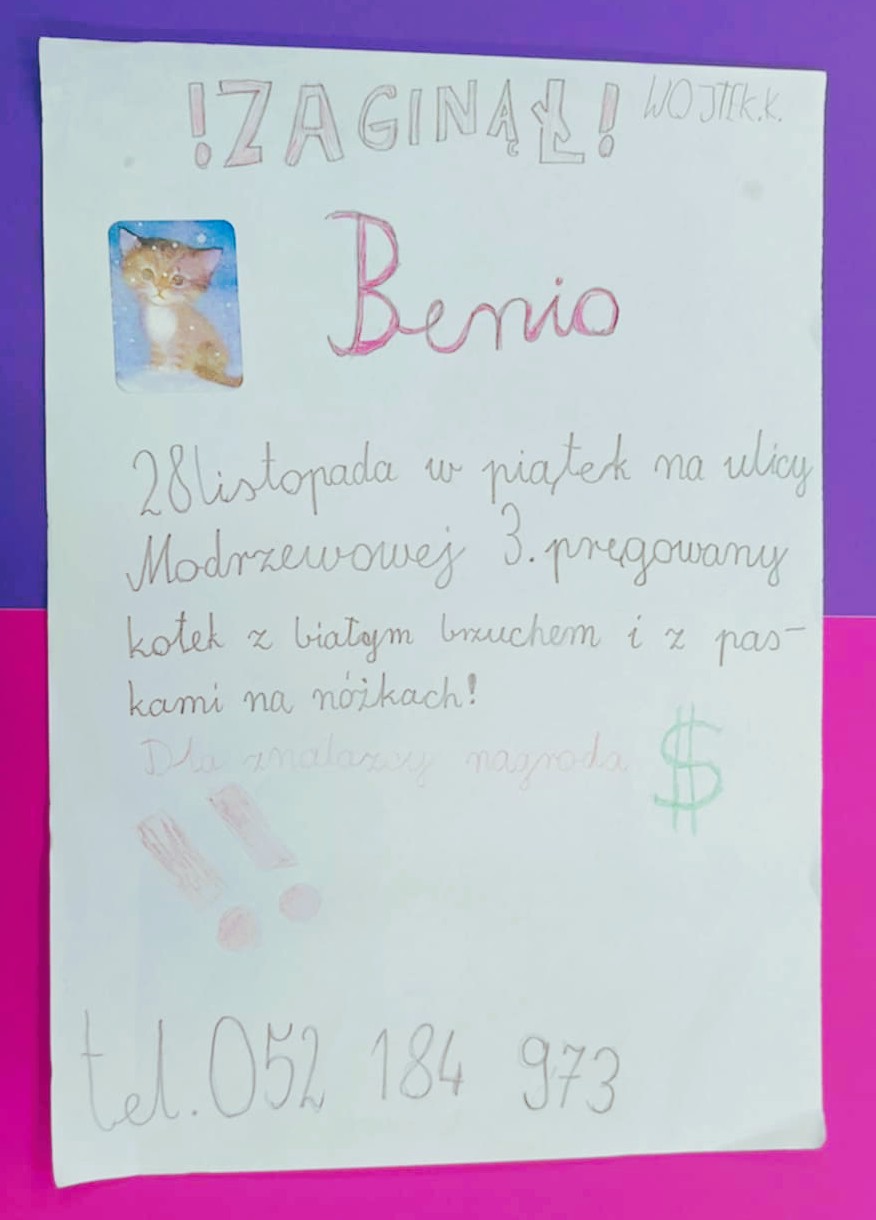 !ZAGINĄŁ!
WOJTEK.K.
Benio
28 listopada w piątek na ulicy
Modrzewowej 3. pręgowany
kotek z białym brzuchem i z pas-
kami na nóżkach!
Dla znalazcy nagroda $
!!
tel. 052 184 973